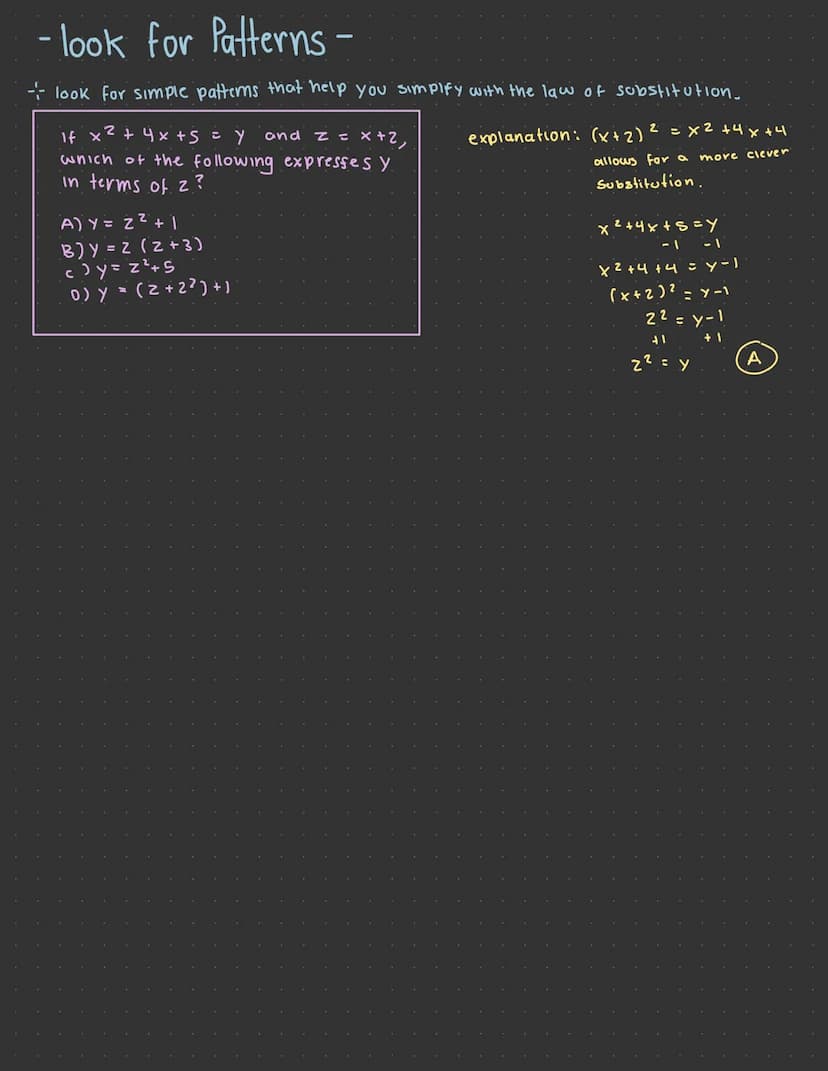 - look for Patterns -
÷ look for simple patterns that help you simplify with the law of substitution.
If x² + 4x + 5 = y and z = x+2,
which of the following expresses y
in terms of z?
A) y = z² + 1
B) y = z (z+3)
C) y = z² + 5
D) y = (z + 2²) + 1
explanation: (x+2)² = x² + 4x + 4
allows for a more clever
substitution.
x² + 4x + 5 = y
-1 -1
x² + 4 + 4 = y - 1
(x+2)² = y - 1
z² = y - 1
+1 +1
z² = y
A